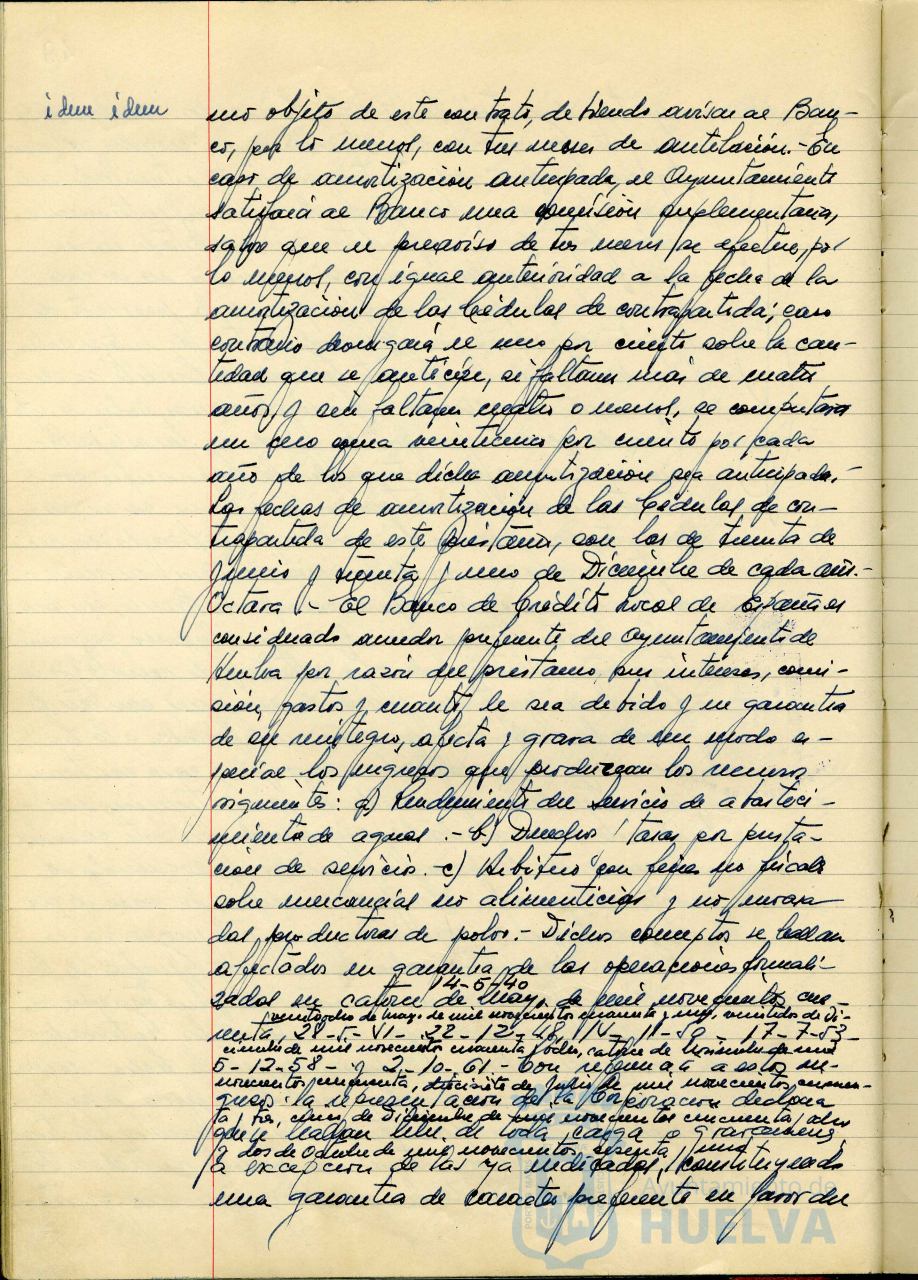 idem idem
mo objeto de este contrato, debiendo avisar al Ban-
co, por lo menos, con tres meses de antelación.- En
caso de amortización anticipada, el Ayuntamiento
satisfará al Banco una comisión suplementaria,
salvo que el preaviso de tres meses se efectúe, por
lo menos, con igual anterioridad a la fecha de la
amortización de las Cédulas de contrapartida; caso
contrario devengará el uno por ciento sobre la can-
tidad que se anticipe, si faltaren más de cuatro
años, y si faltaren cuatro o menos, se computará
un cero coma veinticinco por ciento por cada
año de los que dicha amortización sea anticipada.-
Las fechas de amortización de las Cédulas de con-
trapartida de este préstamo, son las de treinta de
Junio y treinta y uno de Diciembre de cada año.-
Octava.- El Banco de Crédito Local de España es
considerado acreedor preferente del Ayuntamiento de
Huelva por razón del préstamo, sus intereses, comi-
sión, gastos y cuanto le sea debido y en garantía
de su reintegro, afecta y grava de un modo es-
pecial los ingresos que produzcan los recursos
siguientes: a) Rendimiento del servicio de abasteci-
miento de aguas.- b) Derechos y tasas por presta-
ción de servicio.- c) Arbitrio con fines no fiscales
sobre mercancías no alimenticias y no envasa-
das productoras de polvo.- Dichos conceptos se hallan
afectados en garantía de las operaciones formali-
14-5-40
zadas en catorce de Mayo de mil novecientos cua-
veintiocho de Mayo de mil novecientos cuarenta y uno, veintidos de Di-
renta, 28-5-41- 22-12-48, 14-11-50- 17-7-53
ciembre de mil novecientos cuarenta y ocho, catorce de Noviembre de mil
5-12-58- y 2-10-61.- Con referencia a estos in-
novecientos cincuenta, diecisiete de Julio de mil novecientos cincuen-
gresos la representación de la Corporación declara
ta y tres, cinco de Diciembre de mil novecientos cincuenta y ocho
que se hallan libres de toda carga o gravamen,
y dos de Octubre de mil novecientos sesenta y uno
a excepción de las ya indicadas, constituyendo
una garantía de carácter preferente en favor del
Ayuntamiento de
HUELVA